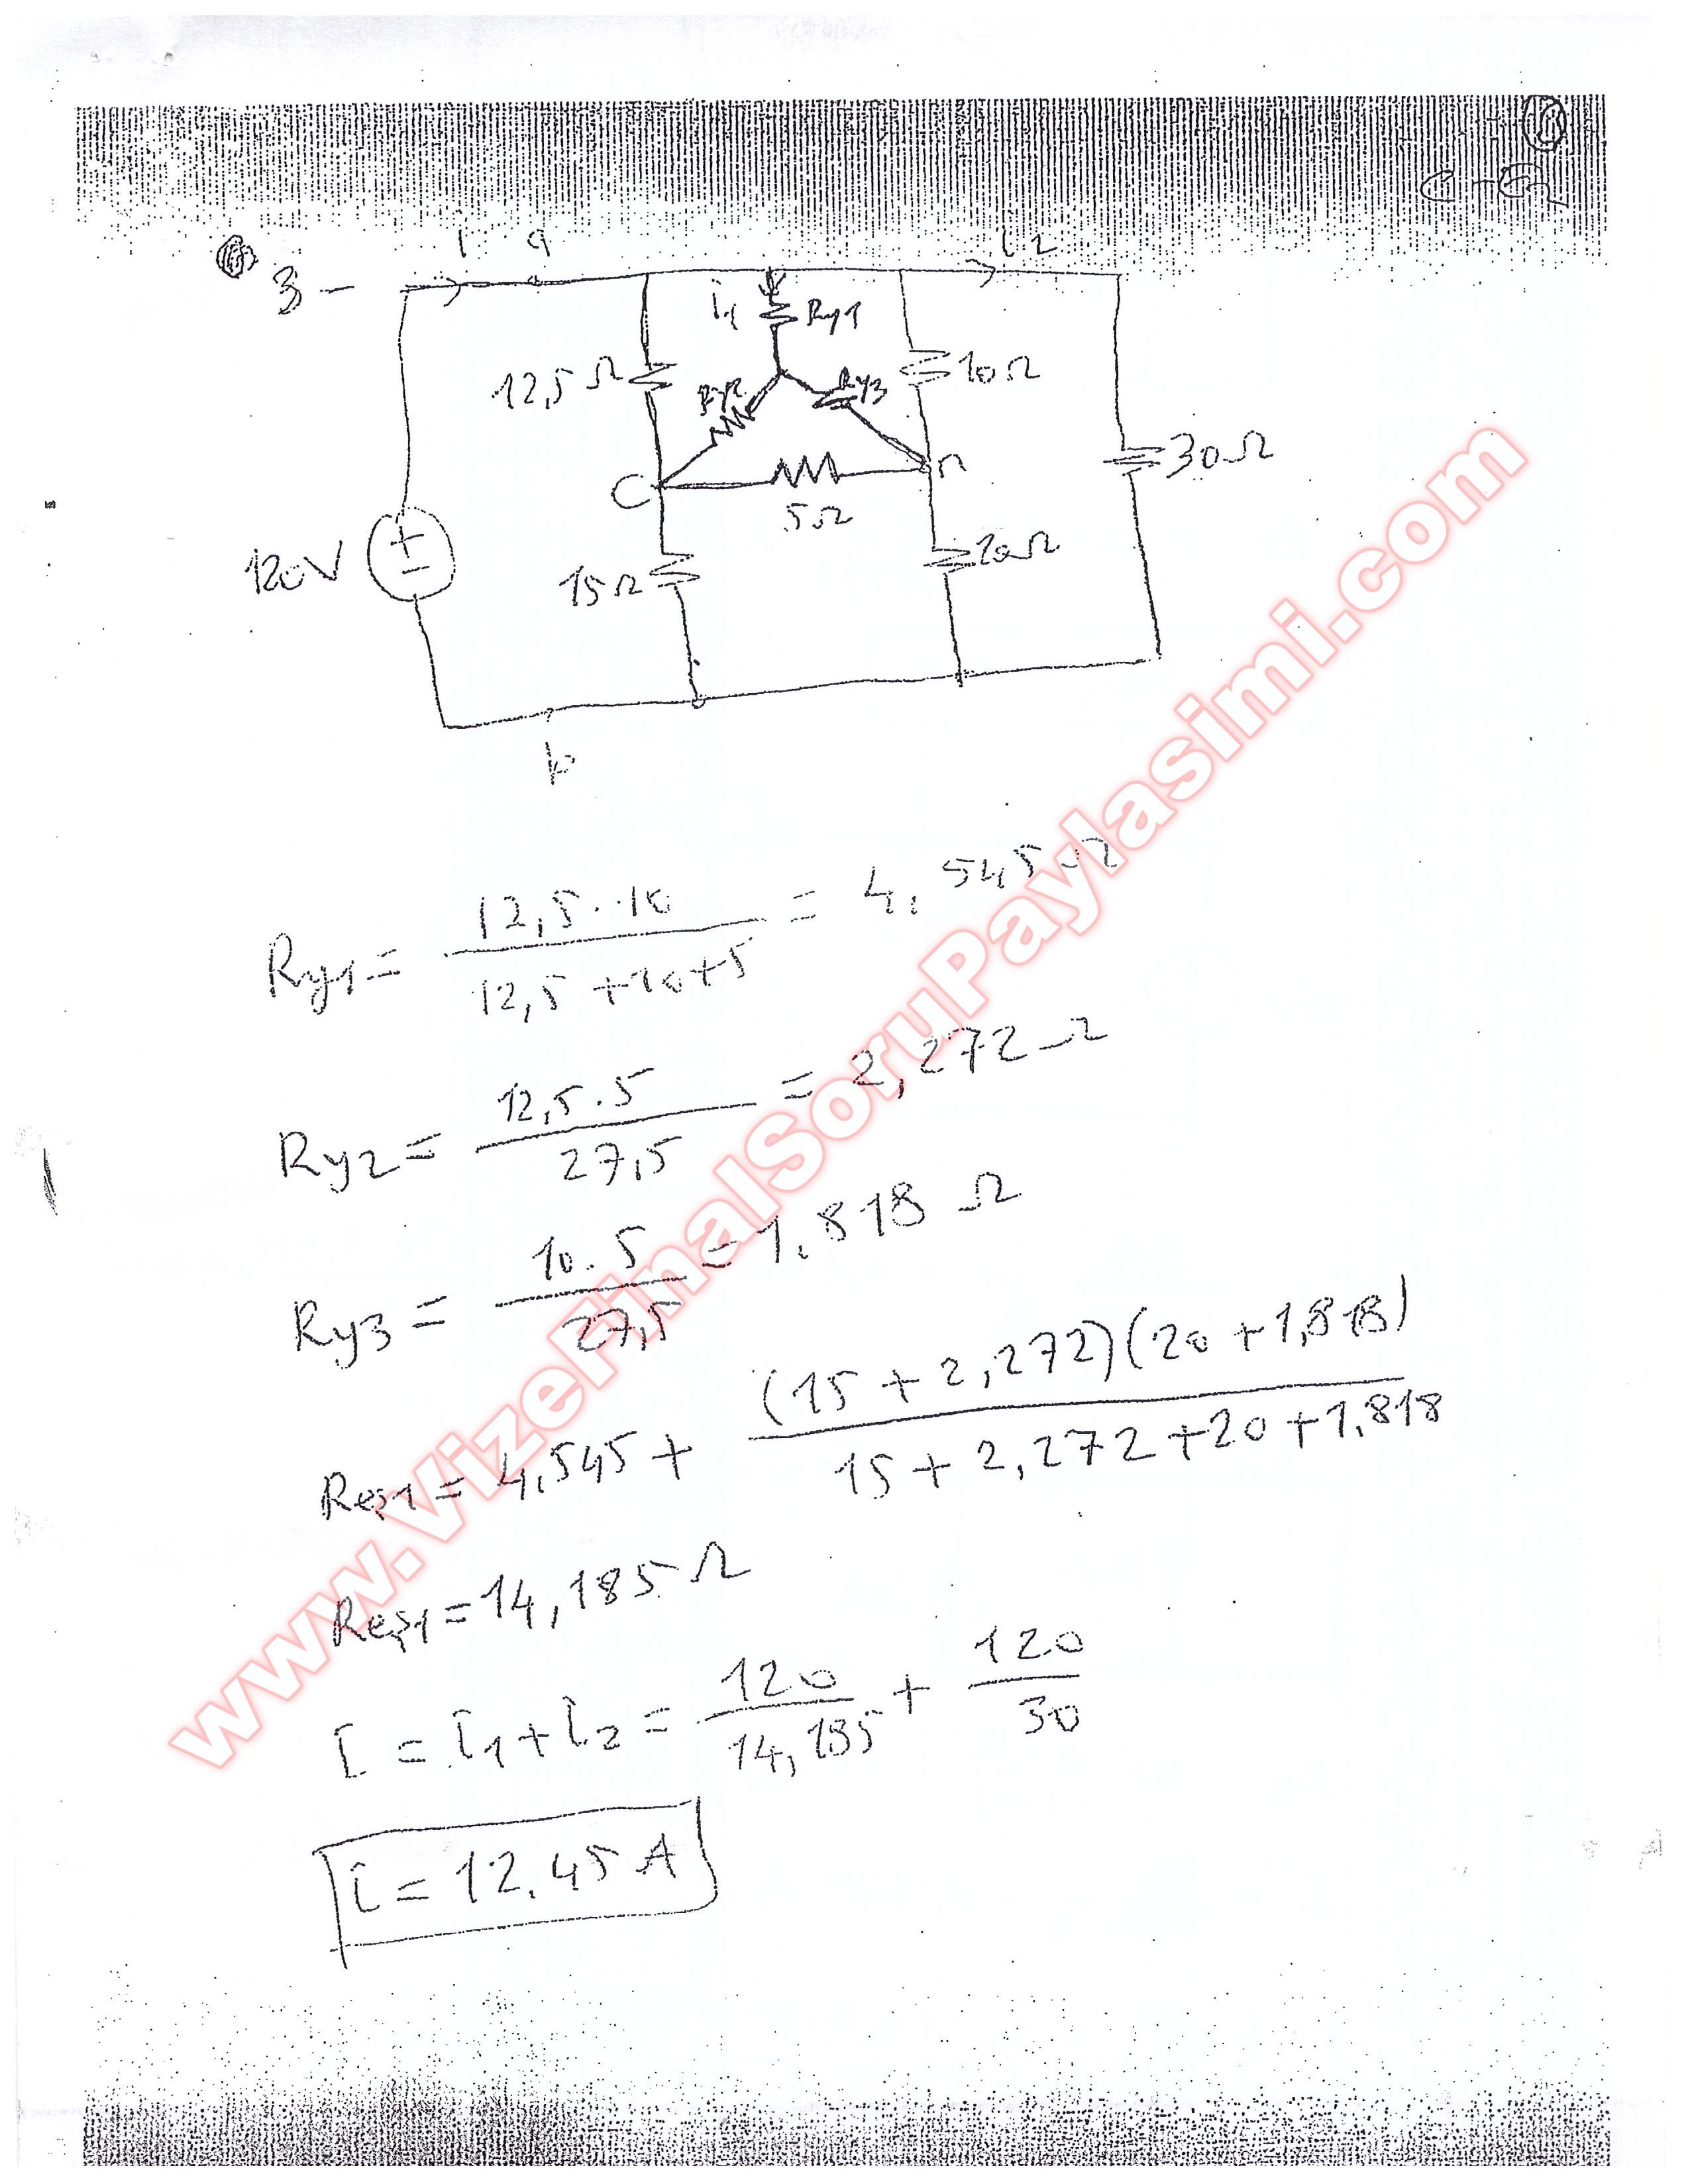 3 -
i a i2
i1 Ry1
12,5 Ω Ry2 Ry3 10Ω
30Ω
C n
5Ω
120V + - 15Ω 20Ω
b
Ry1 = 12,5 . 10 / 12,5 + 10 + 5 = 4,545 Ω
Ry2 = 12,5 . 5 / 27,5 = 2,272 Ω
Ry3 = 10 . 5 / 27,5 = 1.818 Ω
Reş1 = 4,545 + (15 + 2,272) (20 + 1,818) / 15 + 2,272 + 20 + 1.818
Reş1 = 14,185 Ω
i = i1 + i2 = 120 / 14,185 + 120 / 30
i = 12.45 A
www.VizeFinalSoruPaylasimi.com